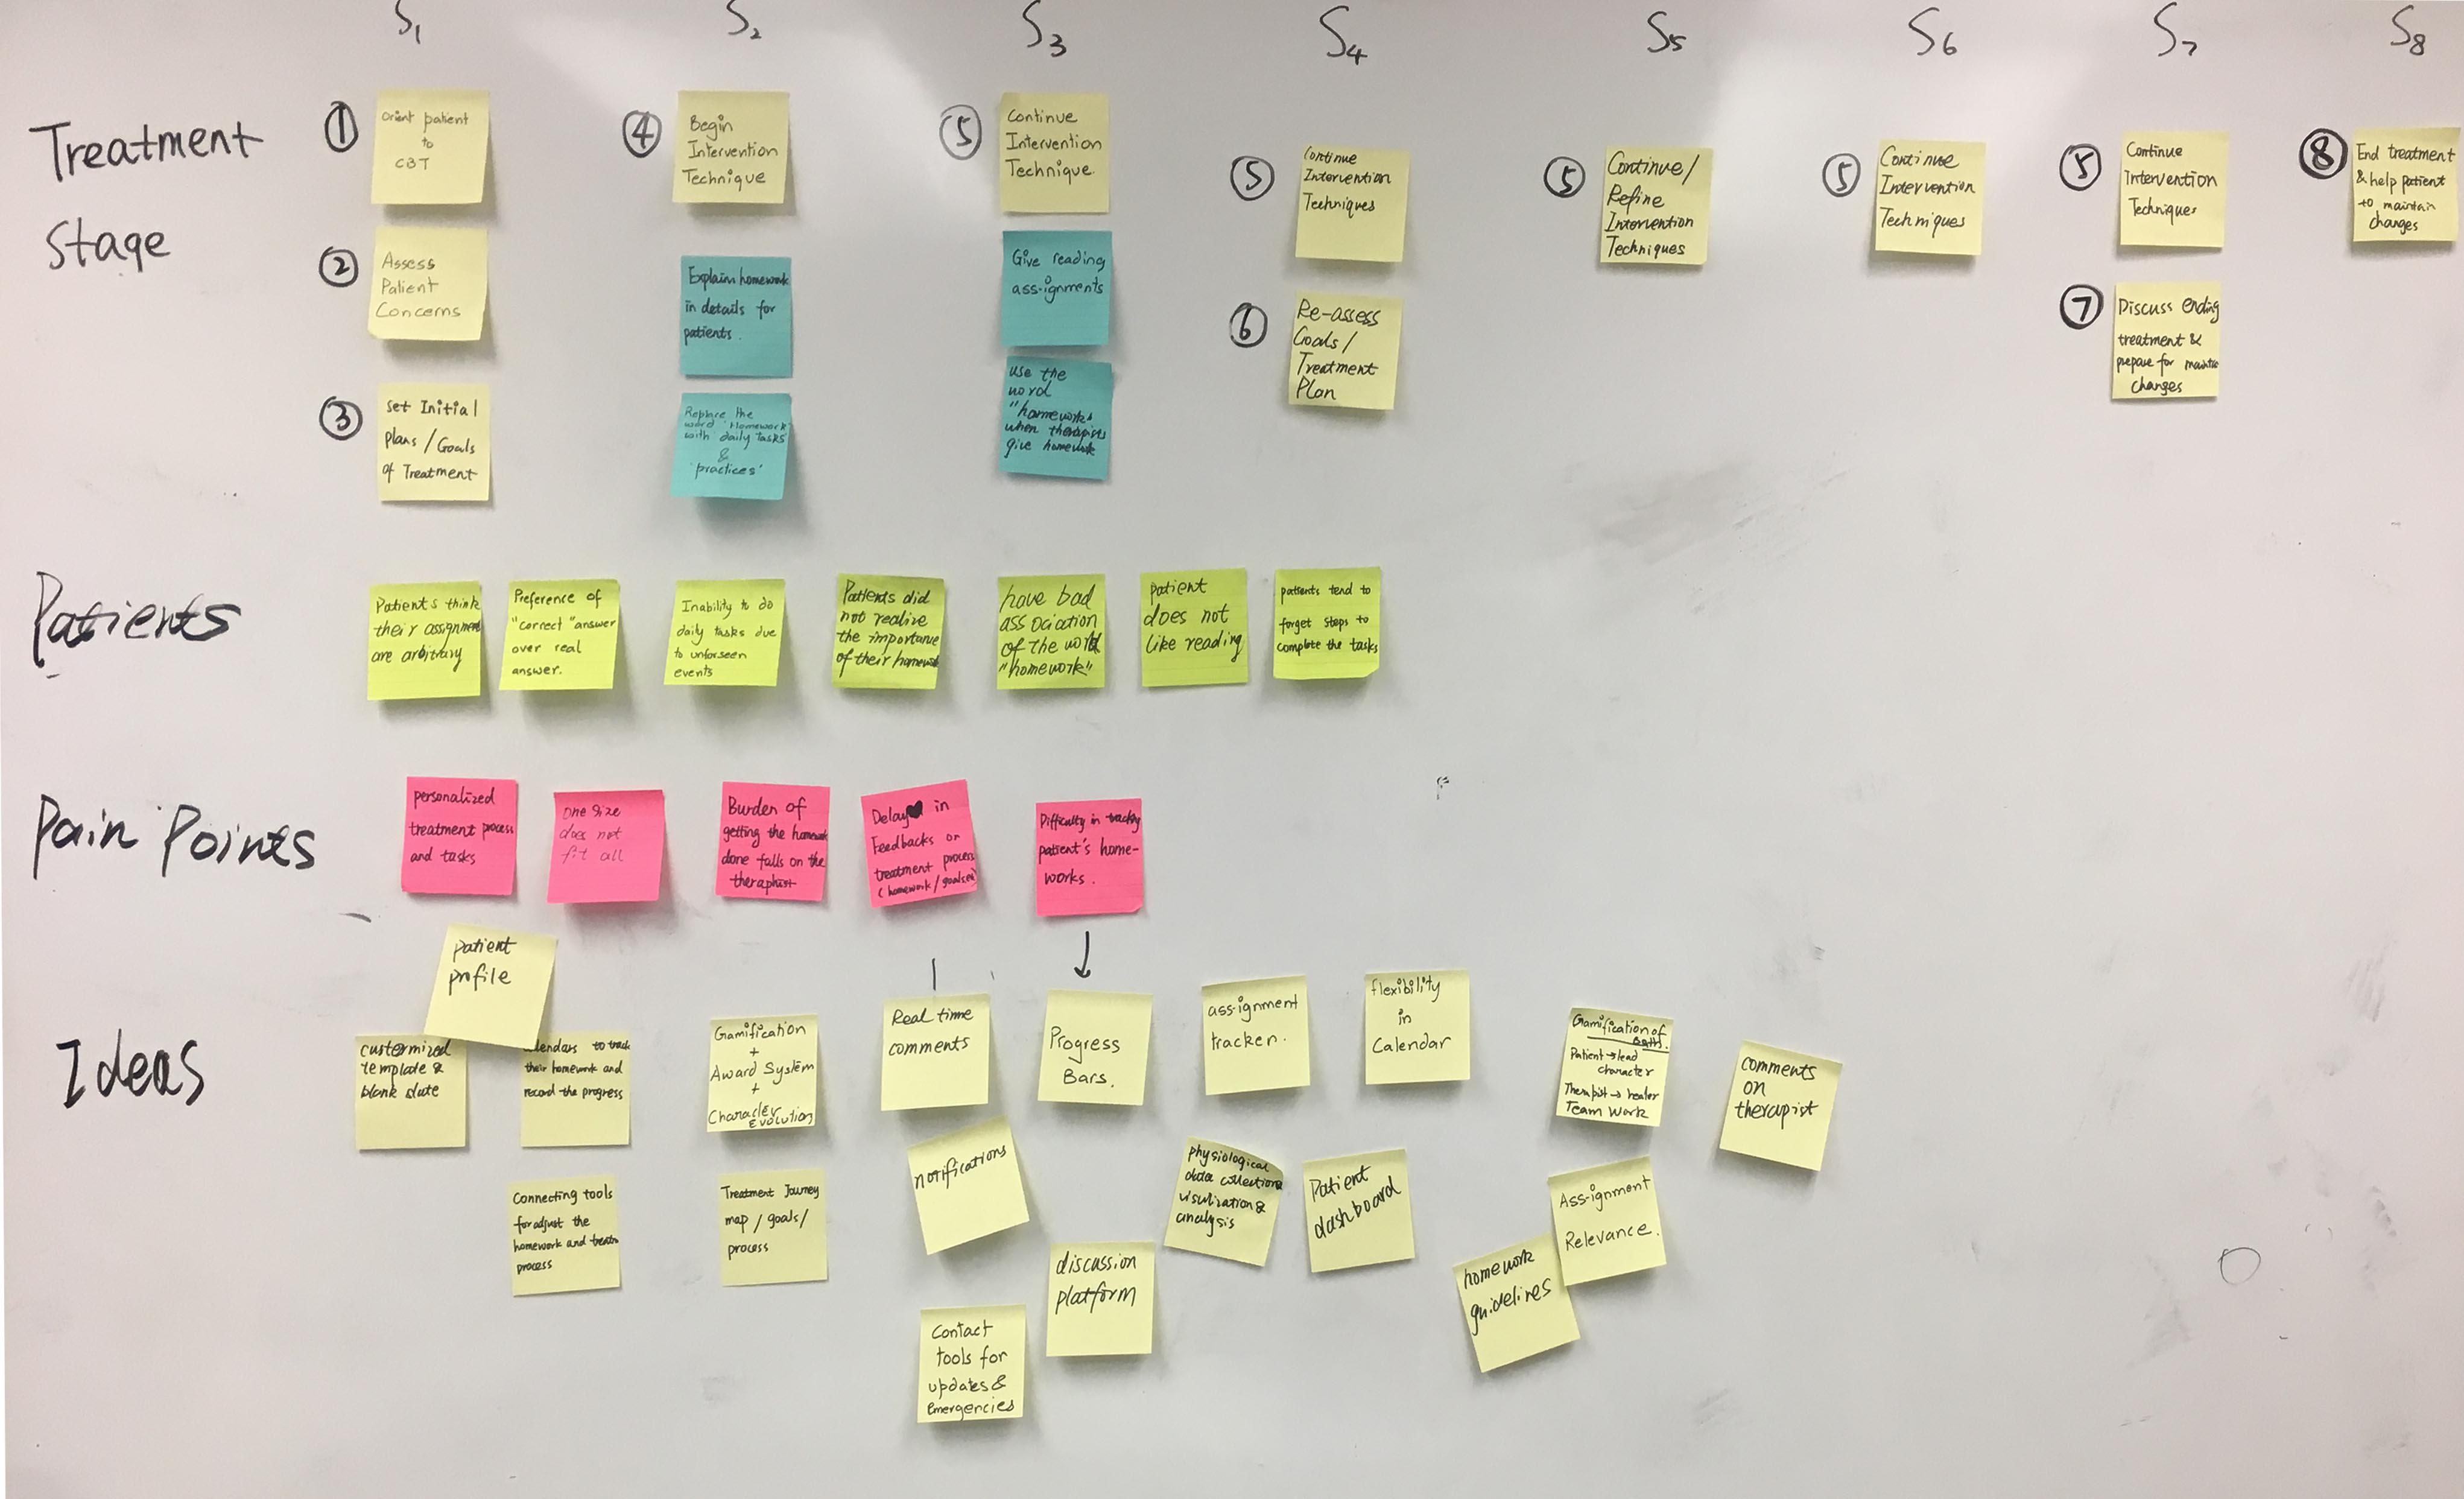 S1
S2
S3
S4
S5
S6
S7
S8
Treatment
Stage
1
Orient patient
to
CBT
2
Assess
Patient
Concerns
3
Set Initial
plans / Goals
of Treatment
4
Begin
Intervention
Technique
Explain homework
in details for
patients.
Replace the
word 'Homework'
with 'daily tasks'
&
'practices'
5
Continue
Intervention
Technique.
Give reading
assignments
use the
word
"homework"
when therapists
give homework
5
Continue
Intervention
Techniques
6
Re-assess
Goals /
Treatment
Plan
5
Continue /
Refine
Intervention
Techniques
5
Continue
Intervention
Techniques
5
Continue
Intervention
Techniques
7
Discuss Ending
treatment &
prepare for
changes
8
End treatment
& help patient
to maintain
changes
Patients
Patients think
their assignment
are arbitrary
Preference of
"correct" answer
over real
answer.
Inability to do
daily tasks due
to unforseen
events
Patients did
not realize
the importance
of their homework
have bad
association
of the world
"homework"
patient
does not
like reading
patients tend to
forget steps to
complete the tasks
Pain Points
personalized
treatment process
and tasks
one size
does not
fit all
Burden of
getting the homework
done falls on the
theraphist
Delay in
Feedbacks or
treatment process
(homework / goalset)
Difficulty in tracking
patient's home-
works.
Ideas
patient
profile
custermized
template &
blank slate
to track
their homework and
record the progress
Connecting tools
for adjust the
homework and
process
Gamification
+
Award System
+
Character
Evolution
Treatment Journey
map / goals /
process
Real time
comments
notifications
Contact
tools for
updates &
Emergencies
Progress
Bars.
discussion
platform
assignment
tracker.
physiological
data collection
visulization &
analysis
flexibility
in
Calendar
Patient
dashboard
Gamification of
Both.
Patient → lead
character
Therapist → healer
Team Work
Assignment
Relevance.
homework
guidelines
comments
on
therapist